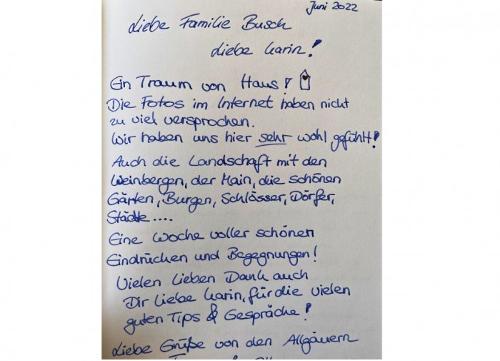 Juni 2022
Liebe Familie Busch
liebe Karin!
Ein Traum von Haus!
Die Fotos im Internet haben nicht
zu viel versprochen.
Wir haben uns hier sehr wohl gefühlt!
Auch die Landschaft mit den
Weinbergen, der Main, die schönen
Gärten, Burgen, Schlösser, Dörfer,
Städte....
Eine Woche voller schöner
Eindrücken und Begegnungen!
Vielen Lieben Dank auch
Dir liebe Karin, für die vielen
guten Tips & Gespräche!
Liebe Grüße von den Allgäuern